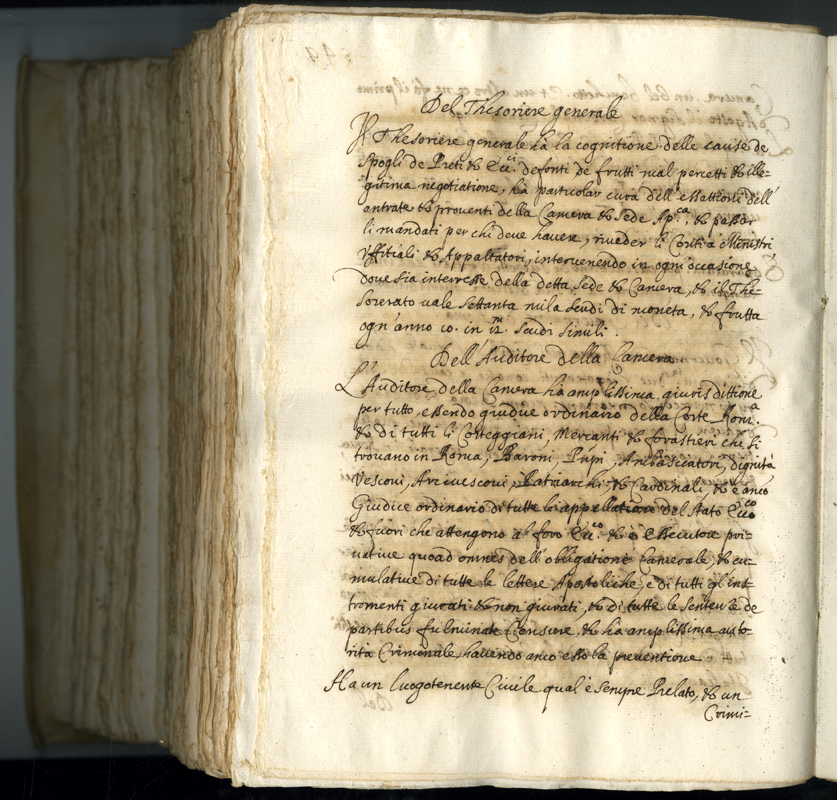 Del Thesoriere generale
Il Thesoriere generale hà la cognitione delle cause de
spogli de Preti & Ecc.ci defonti de frutti mal percetti & ille=
gitima negotiatione, hà particolar cura dell'essattioni dell'
entrate & proventi della Camera & Sede Ap.ca, & passar
li mandati per chi deve havere, riveder li Conti a Ministri
Uffitiali & Appaltatori, intervenendo in ogni occasione,
dove sia interresse della detta Sede & Camera, & il The=
sorerato vale settanta mila scudi di moneta, & frutta
ogn'anno 10. in 12.m scudi simili.
Dell'Auditore della Camera
L'Auditore della Camera hà amplissima giurisdittione
per tutto, essendo giudice ordinario della Corte Rom.a
& di tutti li Corteggiani, Mercanti & forastieri che si
trovano in Roma, Baroni, Prñpi, Ambasciatori, dignità
Vescovi, Arcivescovi, Patriarchi & Cardinali, & è anco
Giudice ordinario di tutte le appellationi del stato Ecc.co
& fuori che attengono al foro Ecc.co & è essecutore pri=
vative quoad omnes dell'obligatione Camerale, & cu=
mulative di tutte le lettere Apostoliche, e di tutti gl'ins=
tromenti giurati & non giurati, & di tutte le sentenze de
partibus fulminate Censure, & hà amplissima auto=
rità Criminale, havendo anco esso la preventione
Ha un luogotenente Civile qual'è sempre Prelato, & un
Crimi=